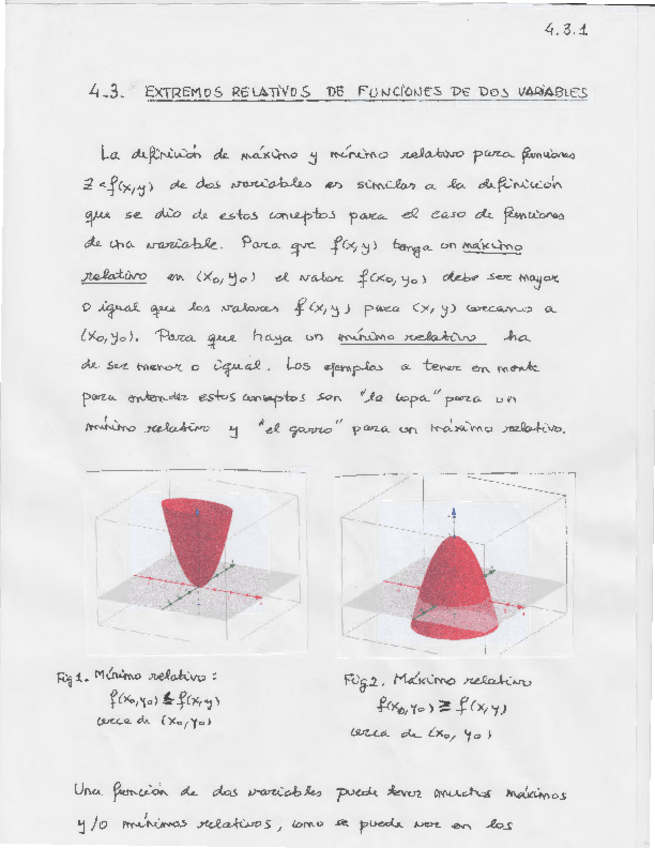 4.3.1
4.3. EXTREMOS RELATIVOS DE FUNCIONES DE DOS VARIABLES
La definición de máximo y mínimo relativo para funciones
z = f(x,y) de dos variables es similar a la definición
que se dio de estos conceptos para el caso de funciones
de una variable. Para que f(x,y) tenga un máximo
relativo en (x₀, y₀) el valor f(x₀, y₀) debe ser mayor
o igual que los valores f(x,y) para (x,y) cercanos a
(x₀,y₀). Para que haya un mínimo relativo ha
de ser menor o igual. Los ejemplos a tener en mente
para entender estos conceptos son "la copa" para un
mínimo relativo y "el gorro" para un máximo relativo.
Fig 1. Mínimo relativo:
f(x₀,y₀) ≤ f(x,y)
cerca de (x₀,y₀)
Fig 2. Máximo relativo
f(x₀,y₀) ≥ f(x,y)
cerca de (x₀, y₀)
Una función de dos variables puede tener muchos máximos
y/o mínimos relativos, como se puede ver en los